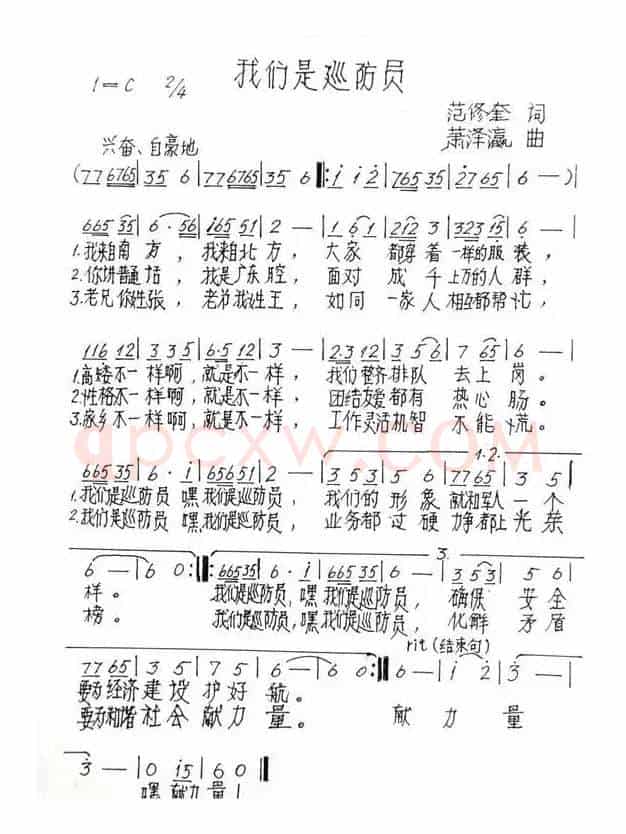 我们是巡防员
1=C 2/4
范修奎 词
萧泽瀛 曲
兴奋、自豪地
(77 6765 | 35 6 | 77 6765 | 35 6 ‖: i i 2 | 765 35 | 2 7 65 | 6 — )|
665 35 | 6 · 56 | i65 51 | 2 — | 1 6 1 | 212 3 | 323 15 | 6 — |
1.我来自南方，我来自北方，大家都穿着一样的服装，
2.你讲普通话，我是广东腔，面对成千上万的人群，
3.老兄你姓张，老弟我姓王，如同一家人相互都帮忙，
116 12 | 3 3 5 | 6·5 12 | 3 — | 2·3 12 | 3 5 6 | 7 65 | 6 — |
1.高矮不一样啊，就是不一样，我们整齐排队去上岗。
2.性格不一样啊，就是不一样，团结友爱都有热心肠。
3.家乡不一样啊，就是不一样，工作灵活机智不能慌。
1.2.
665 35 | 6 · i | 656 51 | 2 — | 3 5 3 | 5 6 | 77 65 | 3 5 |
1.我们是巡防员 嘿我们是巡防员，我们的形象就和军人一个
2.我们是巡防员 嘿我们是巡防员，业务都过硬力争都上光荣
3.
6 — | 6 0 :‖: 665 35 | 6 · i | 665 35 | 6 — | 3 5 3 | 5 6 |
样。我们是巡防员，嘿我们是巡防员，确保安全
榜。我们是巡防员，嘿我们是巡防员，化解矛盾
rit(结束句)
77 65 | 3 5 | 7 5 | 6 — | 6 0 :‖ 6 — | i 2 | 3 — |
要为经济建设护好航。
要为和谐社会献力量。献力量
3 — | 0 i5 | 6 0 ‖
嘿献力量！
qpcxw.com